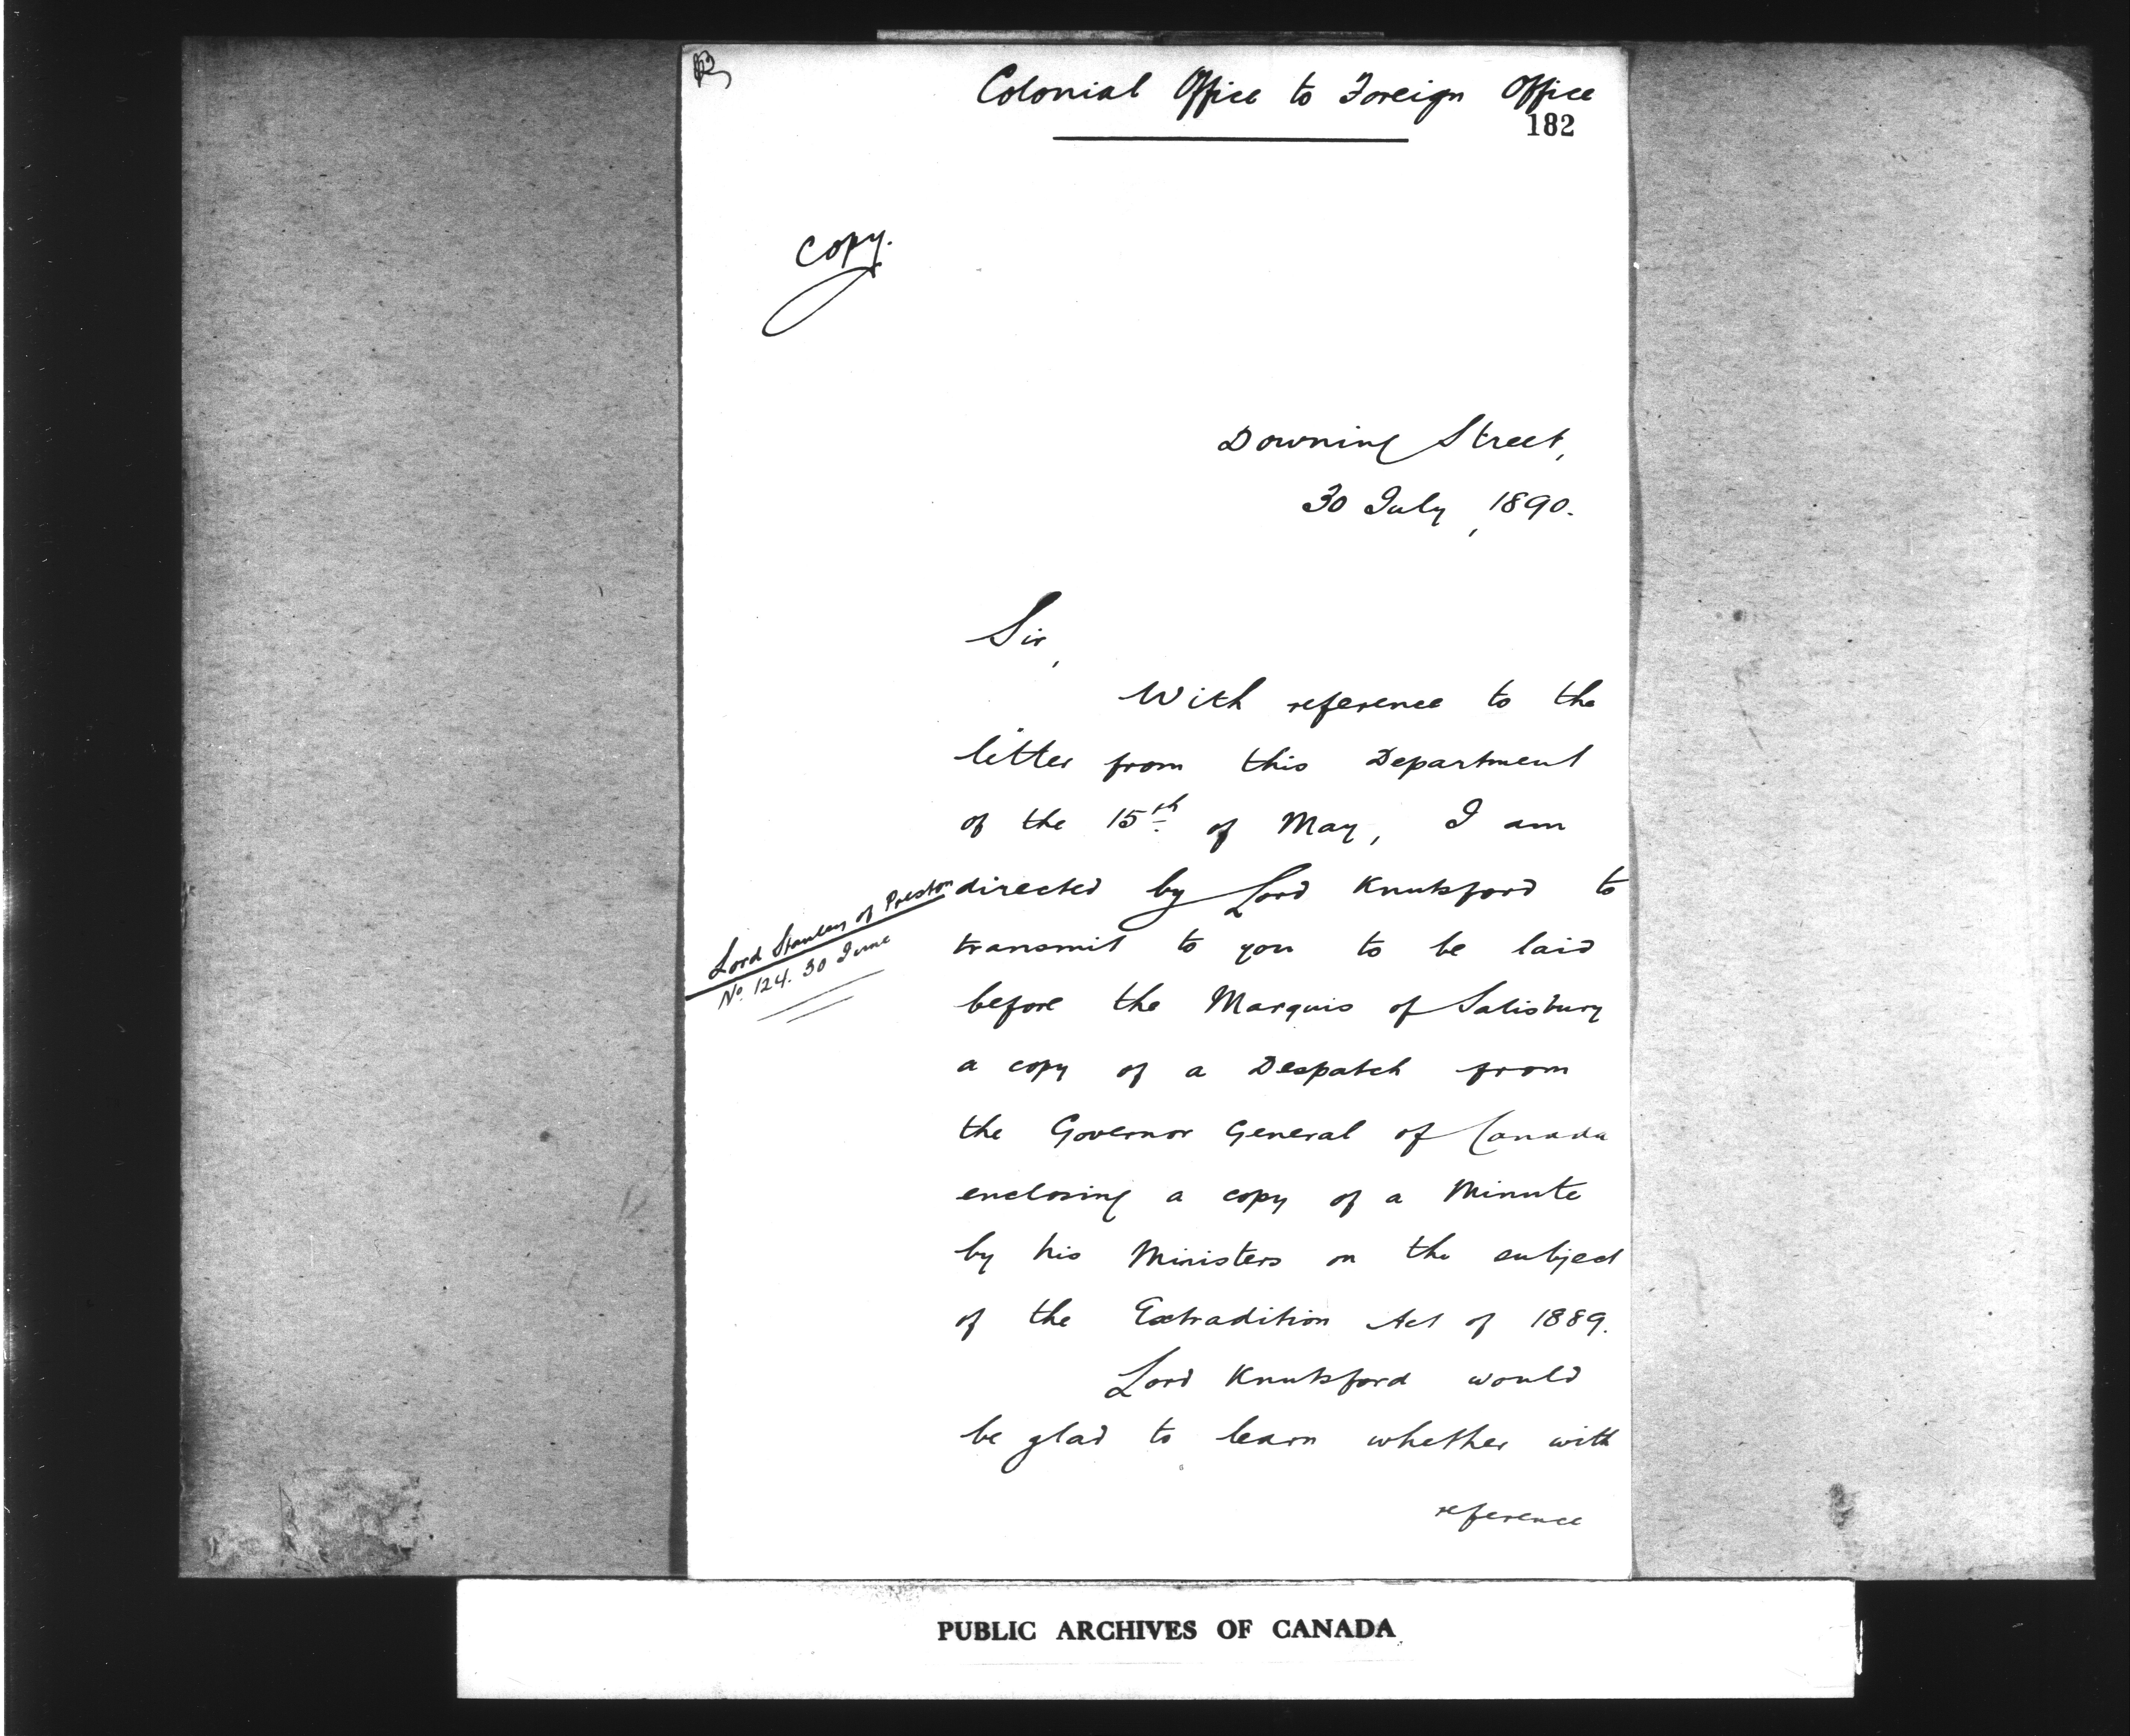 Colonial Office to Foreign Office
182
Copy.
Downing Street,
30 July, 1890.
Sir,
With reference to the
letter from this Department
of the 15th of May, I am
directed by Lord Knutsford to
Lord Stanley of Preston
No. 124. 30 June
transmit to you to be laid
before the Marquis of Salisbury
a copy of a Despatch from
the Governor General of Canada
enclosing a copy of a Minute
by his Ministers on the subject
of the Extradition Act of 1889.
Lord Knutsford would
be glad to learn whether with
reference
PUBLIC ARCHIVES OF CANADA